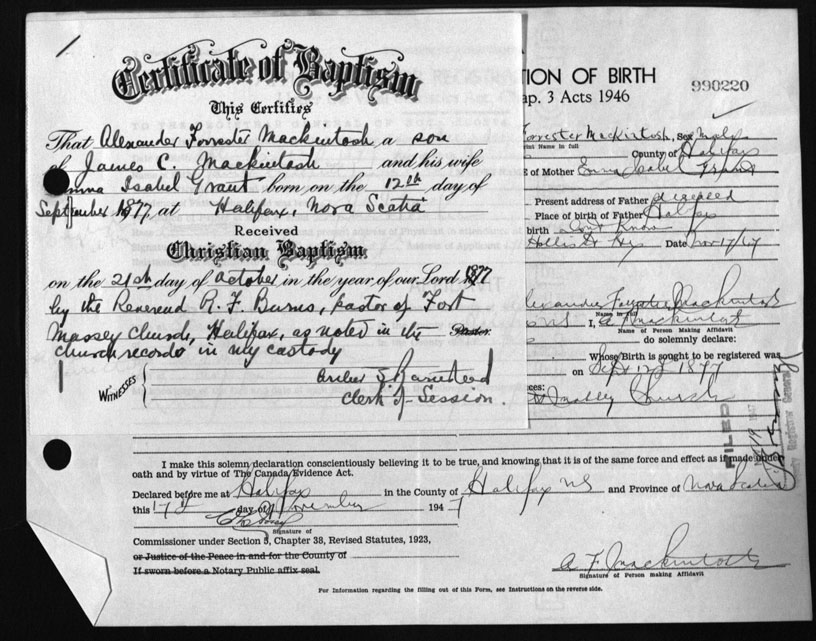 Certificate of Baptism
This Certifies
That Alexander Forrester Mackintosh a son
of James C. Mackintosh and his wife
Emma Isabel Grant born on the 12th day of
September 1877 at Halifax, Nova Scotia
Received
Christian Baptism
on the 21st day of October in the year of our Lord 1877
by the Reverend R. F. Burns, pastor of Fort
Massey Church, Halifax, as noted in the Pastor.
church records in my custody
WITNESSES
Clerk of Session.
TION OF BIRTH
ap. 3 Acts 1946
990220
Forrester Mackintosh, Sex Male
rint Name in full
County of Halifax
E of Mother Emma Isabel Grant
Present address of Father deceased
Place of birth of Father Halifax
birth don't know
Hollis St Hfx Date Nov 17/47
lexander Forrester Mackintosh
Name in full
NS I, A Mackintosh
Name of Person Making Affidavit
do solemnly declare:
Whose Birth is sought to be registered was
on Sept 12 1877
ces:
Church
FILED
Registrar General
I make this solemn declaration conscientiously believing it to be true, and knowing that it is of the same force and effect as if made under
oath and by virtue of The Canada Evidence Act.
Declared before me at Halifax in the County of Halifax NS and Province of Nova Scotia
this 17th day of November 1947
Signature of
Commissioner under Section 5, Chapter 38, Revised Statutes, 1923,
or Justice of the Peace in and for the County of
If sworn before a Notary Public affix seal.
A F Mackintosh
Signature of Person making Affidavit
For Information regarding the filling out of this Form, see Instructions on the reverse side.